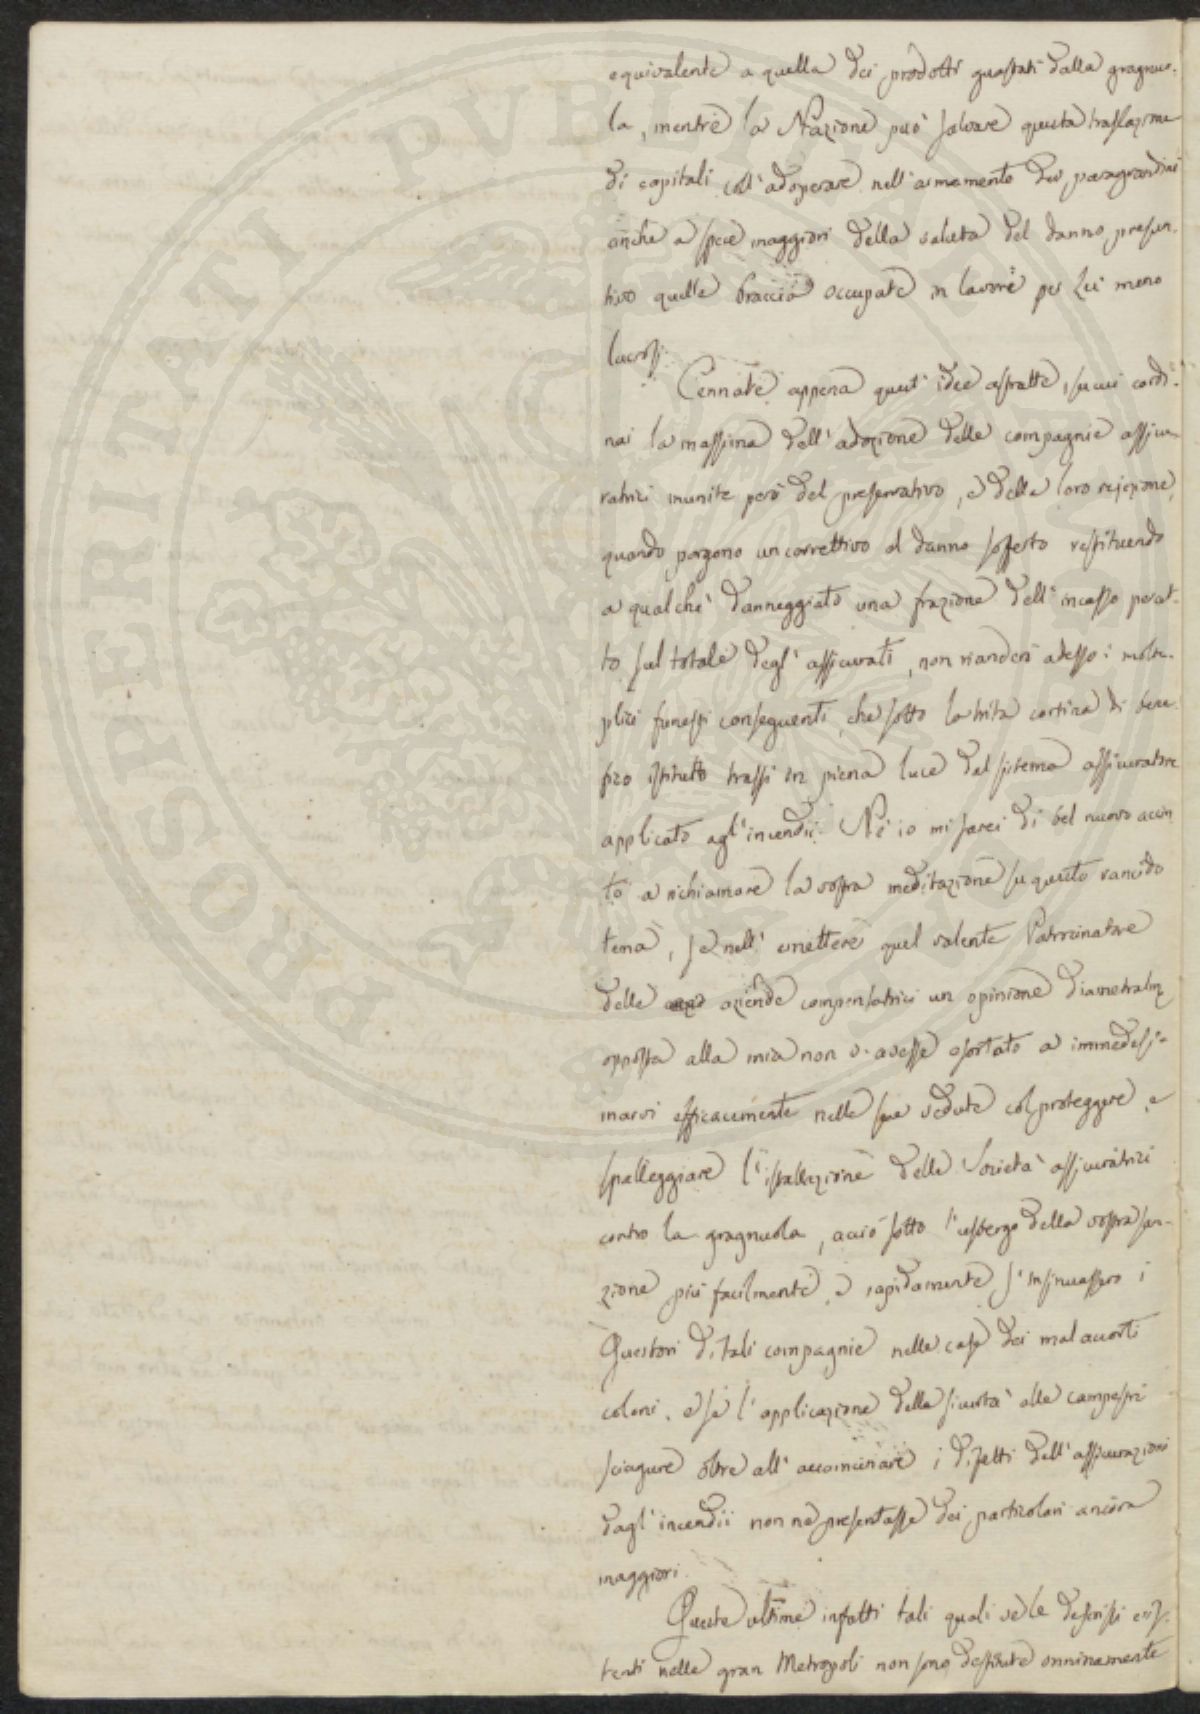 equivalente a quella dei prodotti guastati dalla gragnuo-
la, mentre la Nazione può salvare questa traslazione
di capitali coll'adoperare nell'armamento dei paragrandini
anche a spese maggiori della valuta del danno presun-
tivo quelle braccia occupate in lavori per lei meno
lucrosi.
Cennate appena queste idee astratte, su cui cordi-
nai la massima dell'adozione delle compagnie assicu-
ratrici munite però del preservativo, e della loro rejezione,
quando porgono un correttivo al danno sofferto restituendo
a qualche danneggiato una frazione dell'incasso percet-
to sul totale degl'assicurati, non rianderò adesso i molte-
plici funesti conseguenti, che sotto la trita cortina di bene-
fico istituto trassi in piena luce dal sistema assicuratore
applicato agl'incendii. Nè io mi sarei di bel nuovo accin
to a richiamare la vostra meditazione su questo rancido
tema, se nell'emettere quel valente Patrocinatore
delle aziende compensatrici un opinione diametralm.e
opposta alla mia non v'avesse esortato a immedesi-
marvi efficacemente nelle sue vedute col proteggere, e
spalleggiare l'istallazione delle Società assicuratrici
contro la gragnuola, acciò sotto l'usbergo della vostra san-
zione più facilmente, e rapidamente s'insinuassero i
Questori di tali compagnie nelle case dei mal accorti
coloni, e se l'applicazione della sicurtà alle campestri
sciagure oltre all'accomunare i difetti dell'assicurazioni
dagl'incendii non ne presentasse dei particolari ancora
maggiori.
Queste ultime infatti tali quali ve le descrissi esis-
tenti nelle gran Metropoli non sono destitute onninamente